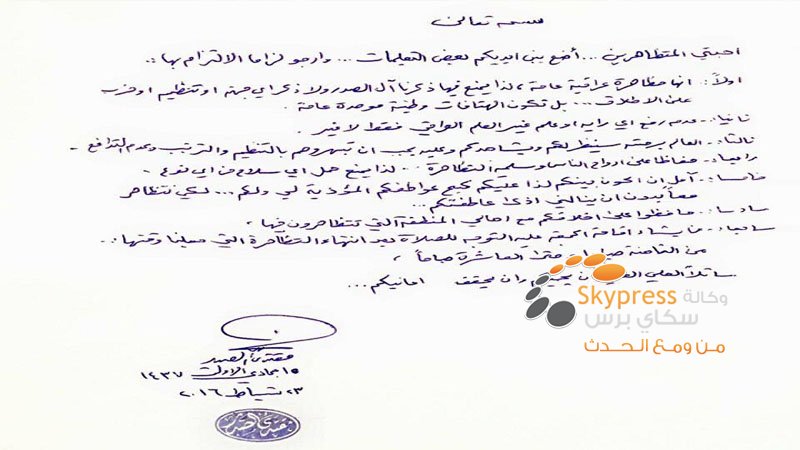 بسمه تعالى
احبتي المتظاهرين ... أضع بين ايديكم بعض التعليمات ... وارجو لزاما الالتزام بها :.
اولاً:- انها مظاهرة عراقية عامة ، لذا يمنع فيها ذكرنا آل الصدر ولا ذكر اي جهة او تنظيم او حزب
على الاطلاق ... بل تكون الهتافات وطنية موحدة عامة .
ثانيا:- عدم رفع اي راية او علم غير العلم العراقي فقط لا غير .
ثالثا:- العالم برمته سينظر لكم ويشاهدكم وعليه يجب ان تبهروهم بالتنظيم والترتيب وعدم التدافع .
رابعا:- حفاظا على ارواح الناس وسلمية التظاهرة .. لذا يمنع حمل اي سلاح من اي نوع .
خامسا:- آمل ان اكون بينكم لذا عليكم كبح عواطفكم المؤذية لي ولكم ... لكي نتظاهر
معاً بدون ان ينالني اذى عاطفتكم ...
سادسا:- حافظوا على اخلاقكم مع اهالي المنطقة التي تتظاهرون فيها .
سابعا:- من يشاء اقامة الجمعة عليه التوجه للصلاة بعد انتهاء التظاهرة التي وقتها :.
من الثامنة صباحا حتى العاشرة صباحاً ،
سائلاً العلي ان وان يحقق امانيكم ...
مقتدى الصدر
١٥ جمادي الاولى ١٤٣٧
٢٣ شباط ٢٠١٦
مقتدى الصدر
وكالة
Skypress
سكاي برس
من ومع الحدث